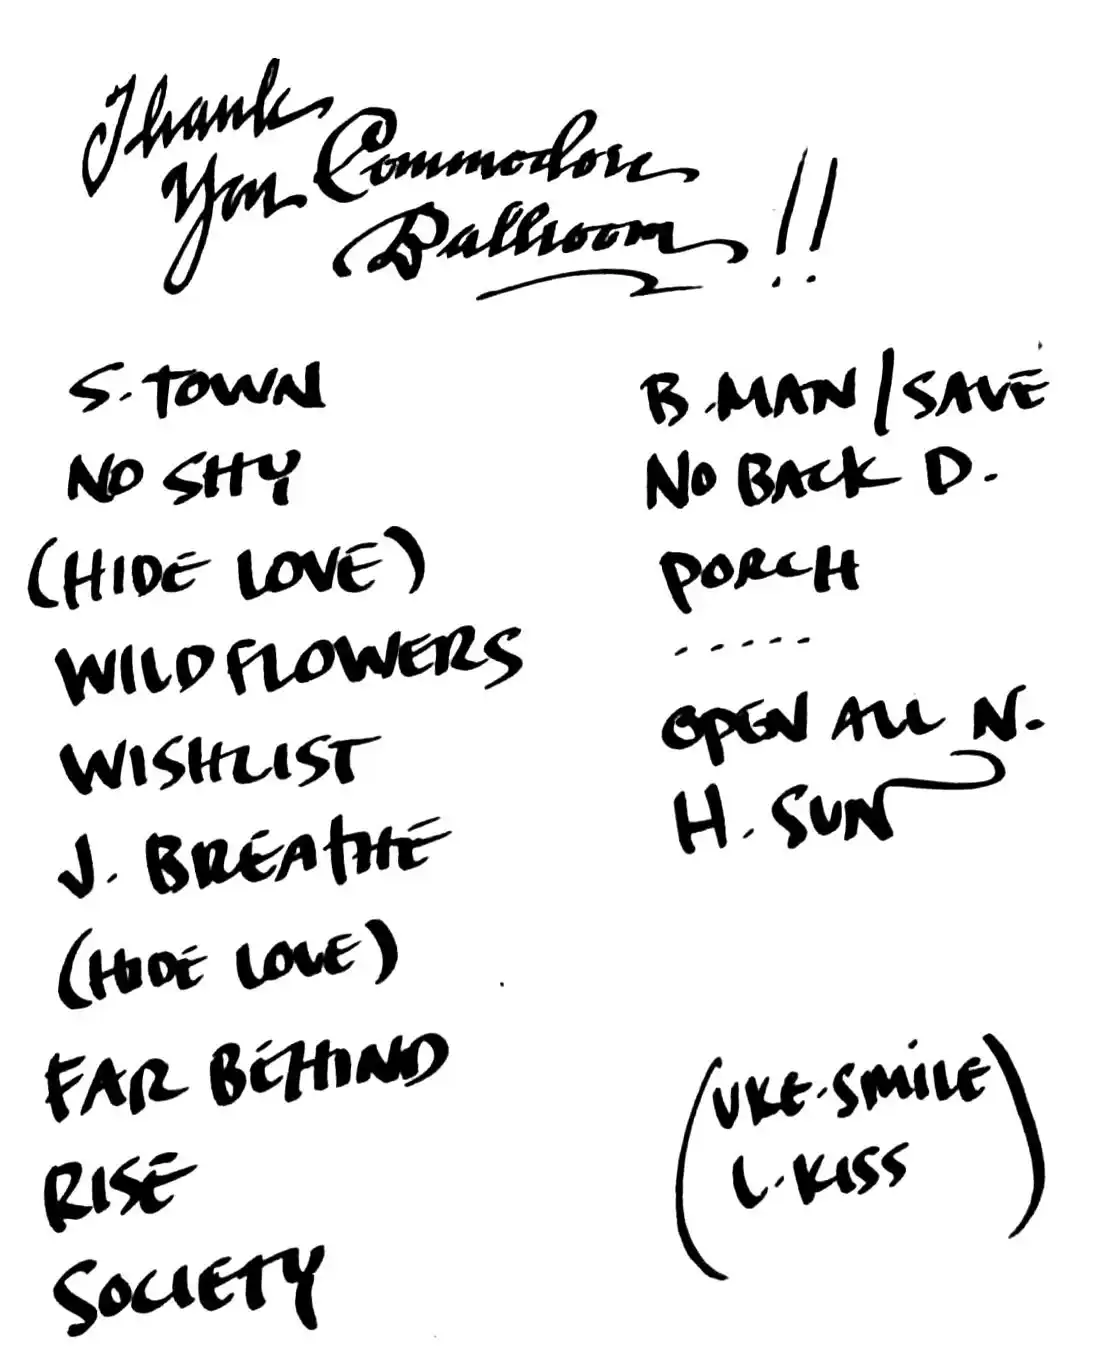 Thank
You Commodore
Ballroom !!
S. TOWN
NO SHY
(HIDE LOVE)
WILDFLOWERS
WISHLIST
J. BREATHE
(HIDE LOVE)
FAR BEHIND
RISE
SOCIETY
B. MAN / SAVE
NO BACK D.
PORCH
-----
OPEN ALL N.
H. SUN
(UKE. SMILE
L. KISS)